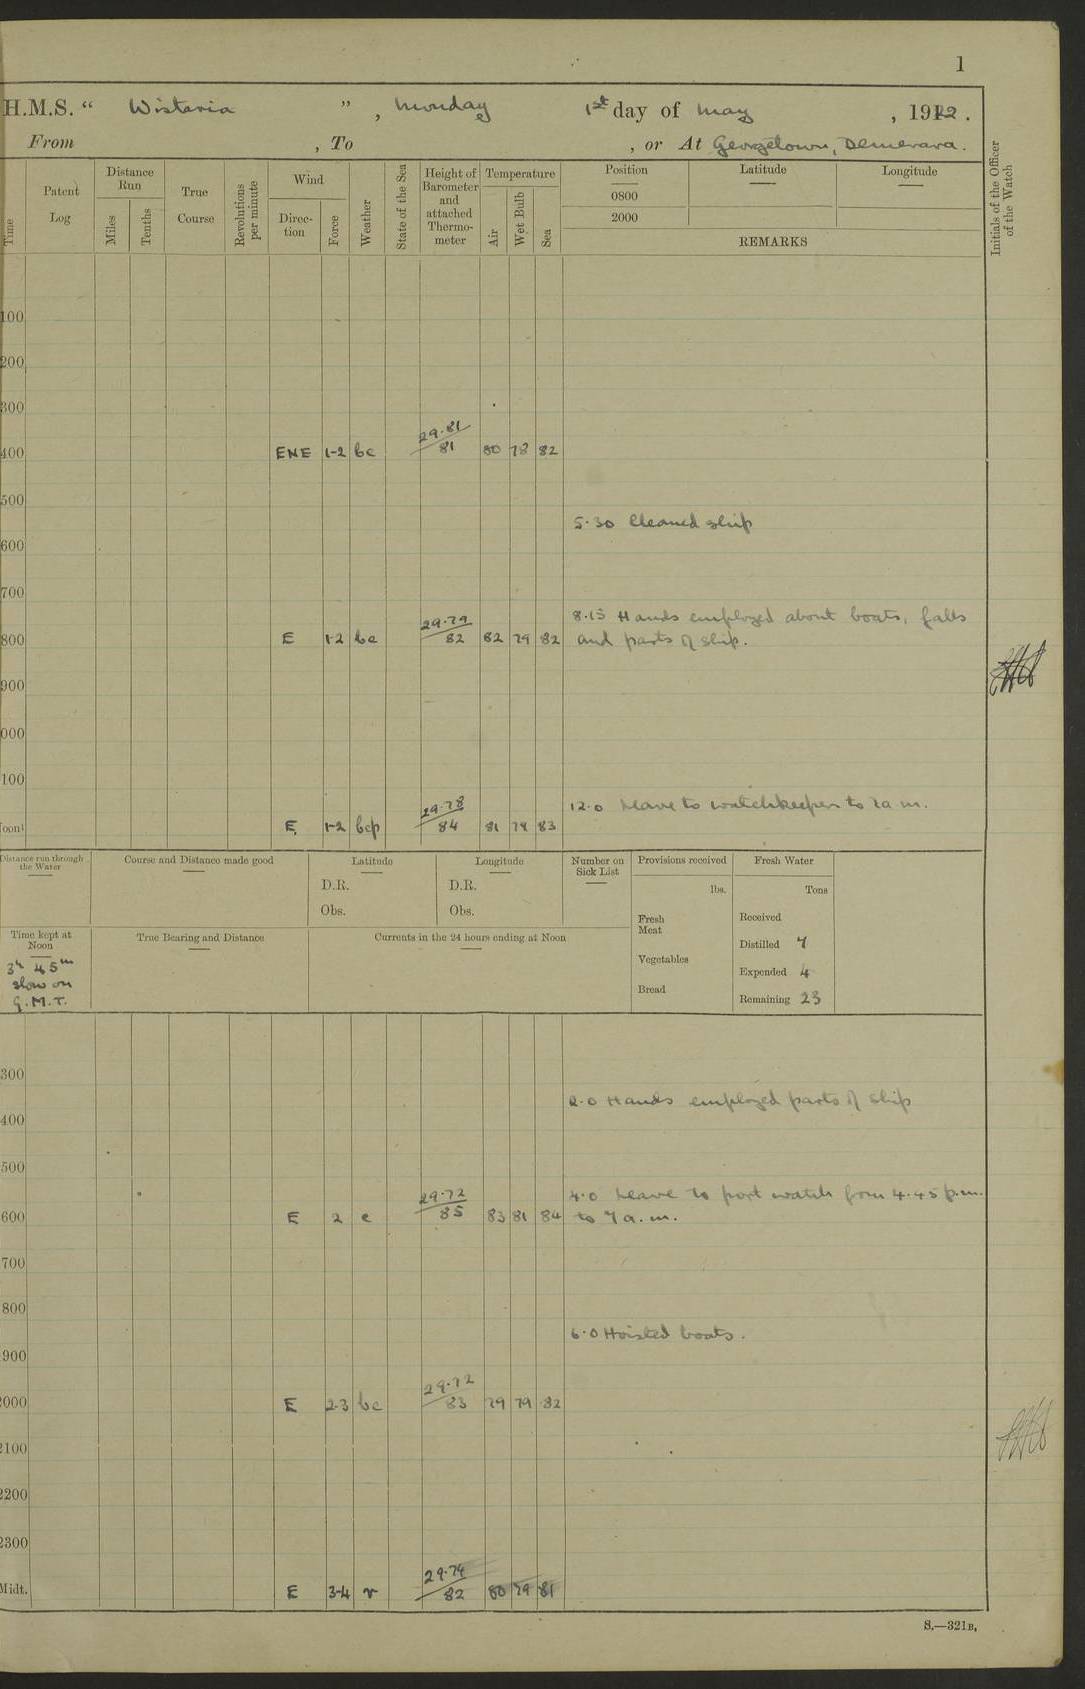 1
H.M.S. “ Wistaria ”, Monday 1st day of May , 1922.
From , To , or At Georgetown, Demerara.
Time
Patent Log
Distance Run
Miles
Tenths
True Course
Revolutions per minute
Wind
Direc-tion
Force
Weather
State of the Sea
Height of Barometer and attached Thermo-meter
Temperature
Air
Wet Bulb
Sea
Position
Latitude
Longitude
0800
2000
REMARKS
Initials of the Officer of the Watch
100
200
300
400 ENE 1-2 bc 29.81/81 80 78 82
500
5.30 Cleaned ship
600
700
8.15 Hands employed about boats, falls
800 E 1-2 bc 29.79/82 82 79 82 and parts of ship.
900
000
100
12.0 Leave to watchkeepers to 7a.m.
oon E 1-2 bcp 29.78/84 81 79 83
Distance run through the Water
Course and Distance made good
Latitude
D.R.
Obs.
Longitude
D.R.
Obs.
Number on Sick List
Provisions received
lbs.
Fresh Meat
Vegetables
Bread
Fresh Water
Tons
Received
Distilled 7
Expended 4
Remaining 23
Time kept at Noon
3h 45m
slow on
G.M.T.
True Bearing and Distance
Currents in the 24 hours ending at Noon
300
2.0 Hands employed parts of ship
400
500
4.0 Leave to port watch from 4.45 p.m.
600 E 2 c 29.72/85 83 81 84 to 7 a.m.
700
800
6.0 Hoisted boats.
1900
2000 E 2-3 bc 29.72/83 79 79 82
2100
2200
2300
Midt. E 3-4 r 29.74/82 80 79 81
S.—321B.